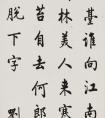 臺誰向江南
林美人来寒
苔自去何郎
脱下字 劉